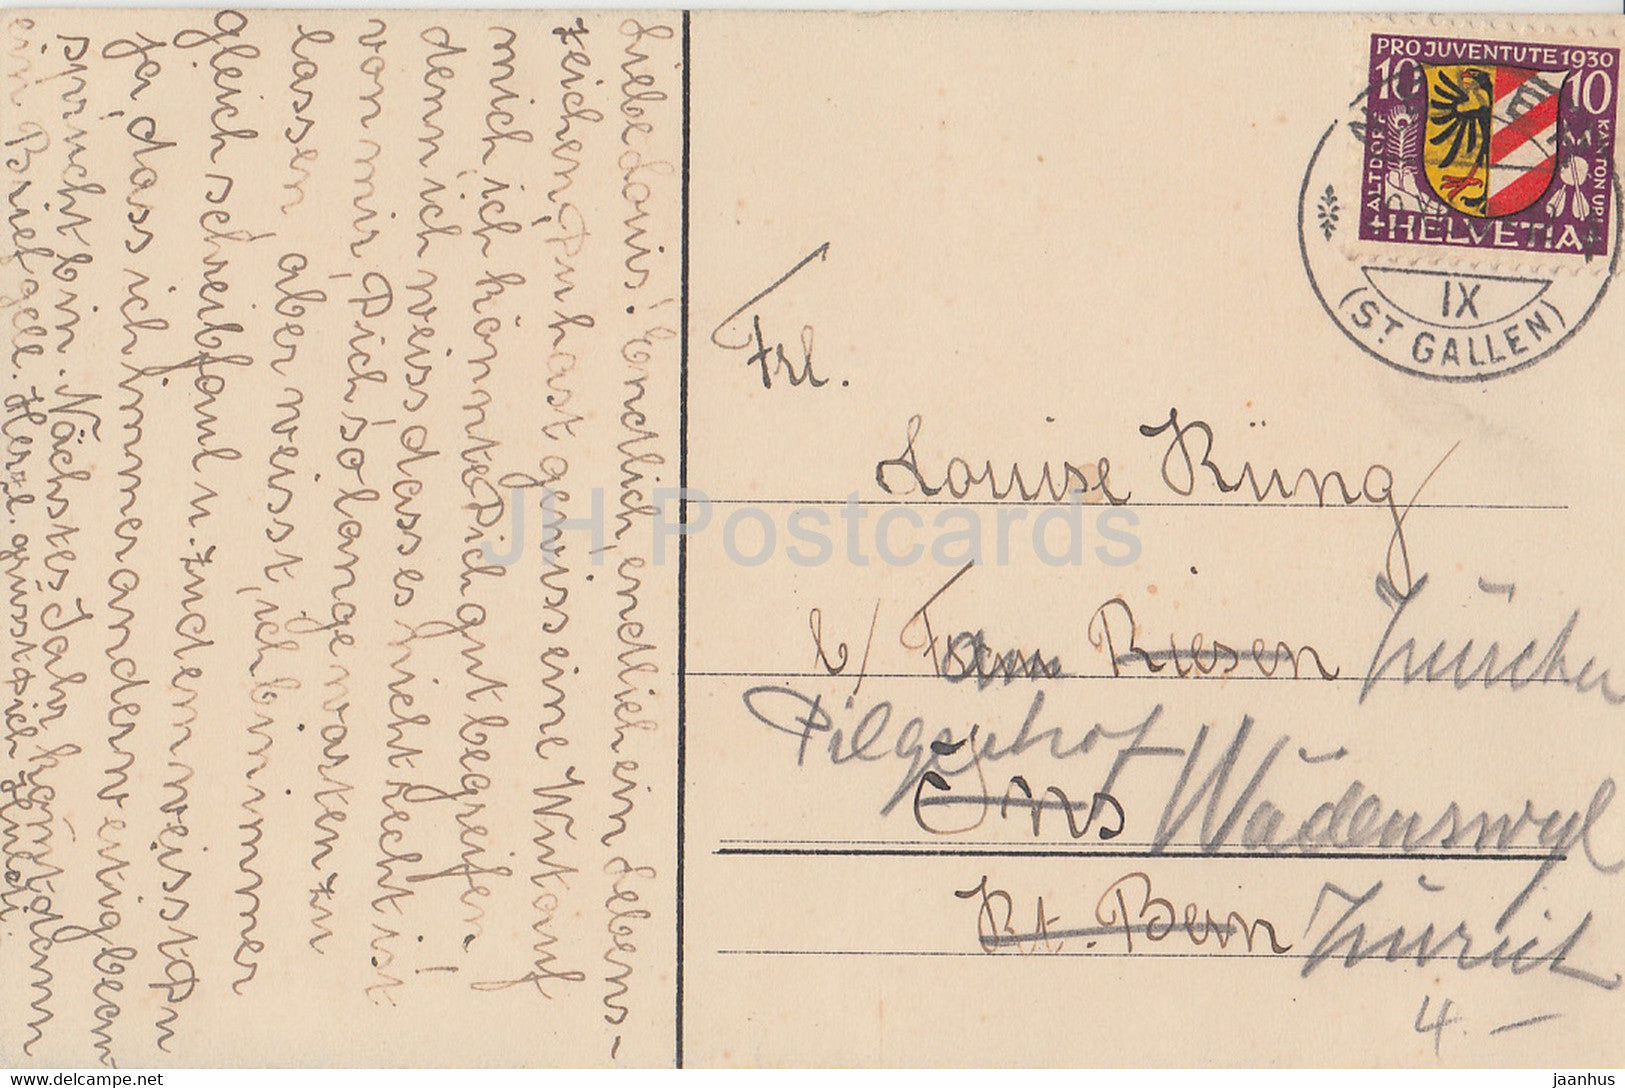 Liebe Louis! Endlich, endlich ein Lebens-
zeichen, Du hast gewiss eine Wut auf
mich ich könnte Dich gut begreifen
denn ich weiss dass es nicht recht ist
von mir, Dich so lange warten zu
lassen, aber weisst, ich bin immer
gleich schreibfaul u. zudem weisst Du
ja, dass ich immer anderweitig bean-
sprucht bin. Nächstes Jahr kommt dann
ein Brief gell. Herzl. grüsst Dich Huldi.
PRO JUVENTUTE 1930
10 10
ALTDORF
KANTON URI
HELVETIA
IX
(ST. GALLEN)
Frl.
Louise Küng
b/ Fam Riesen Zürcher
Pilgerhof
Ins Wädenswyl
Kt. Bern Zürich
4.—
JH Postcards
jaanhus https://www.delcampe.net